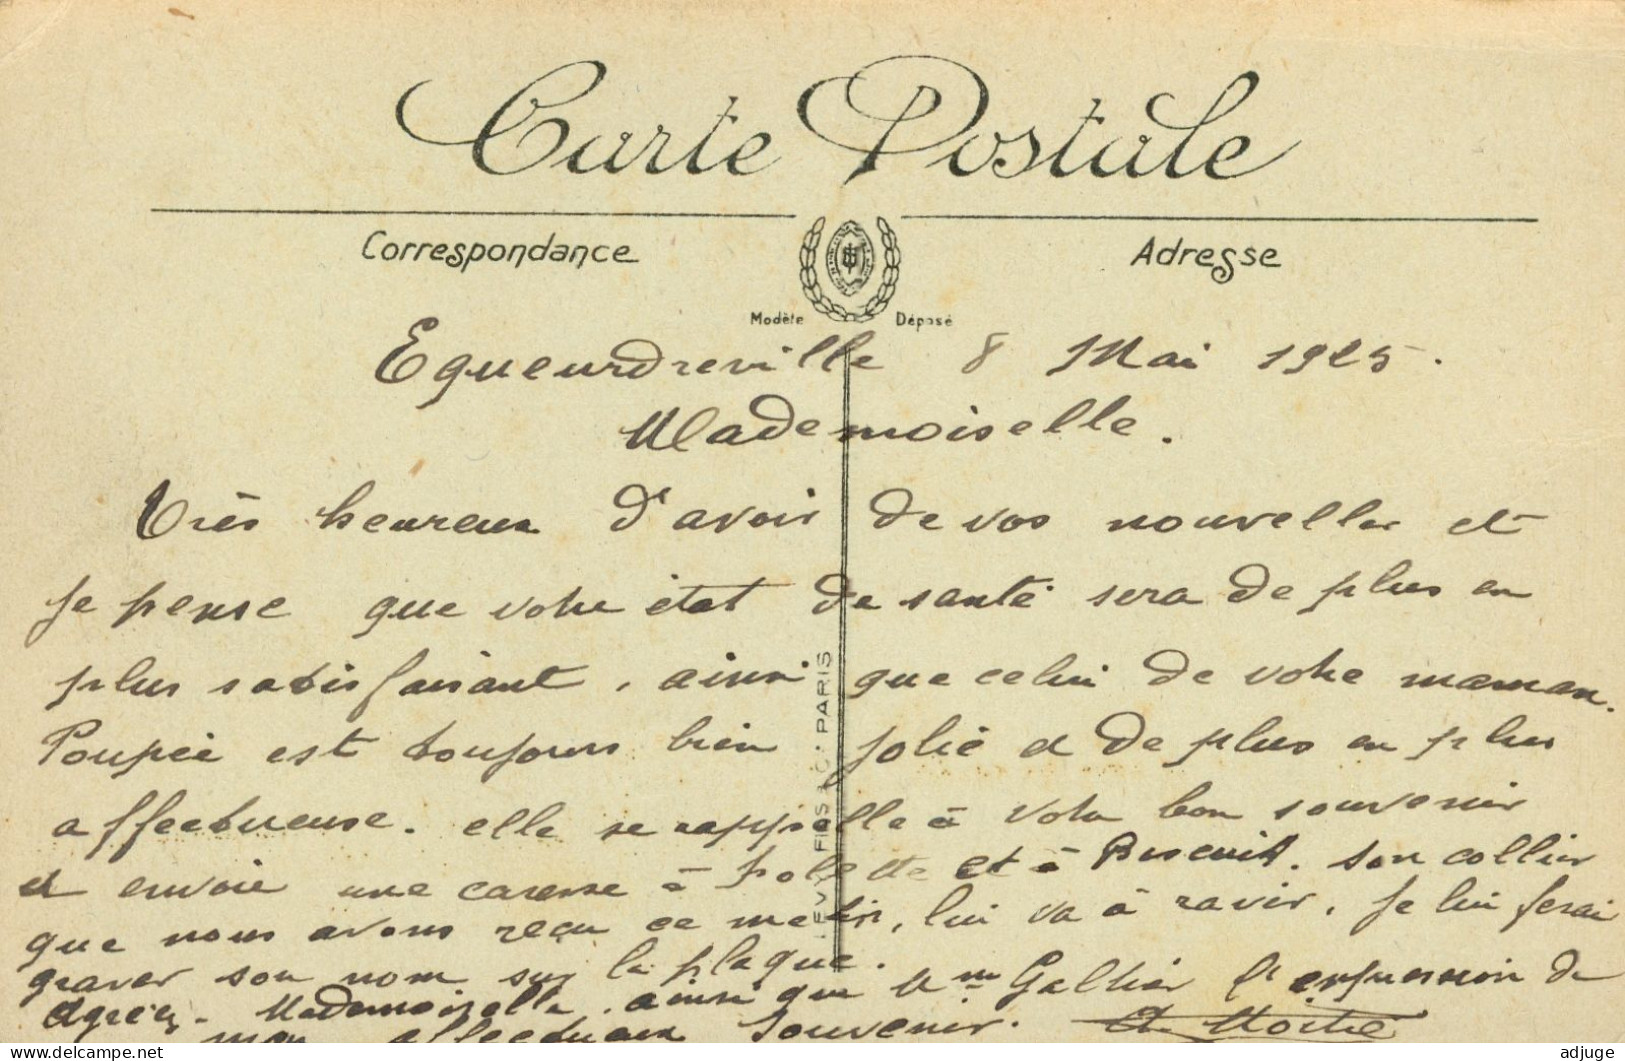 Carte Postale
Correspondance
Adresse
Modèle Déposé
Equeurdreville 8 Mai 1925.
Mademoiselle.
Très heureux d'avoir de vos nouvelles et
je pense que votre état de santé sera de plus en
plus satisfaisant, ainsi que celui de votre maman.
Poupée est toujours bien jolie et de plus en plus
affectueuse. elle se rappelle à votre bon souvenir
et envoie une caresse à et à Biscuit. Son collier
que nous avons reçu ce matin, lui va à ravir, je lui ferai
graver son nom sur la plaque.
Agréez. Mademoiselle, ainsi que Mme l'expression de
mon affectueux Souvenir.
LEVY FILS & C. PARIS
adjuge